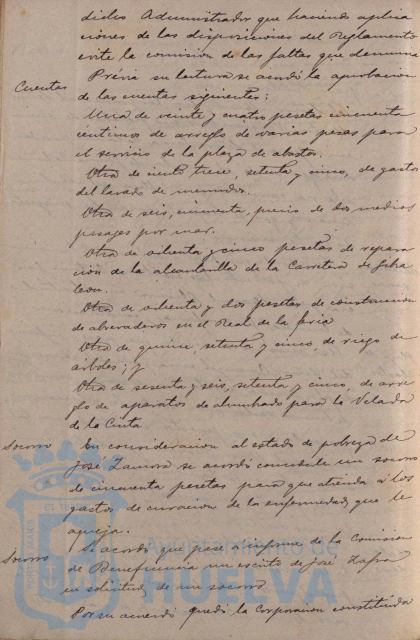 dicho Administrador que haciendo aplica
ciones de las disposiciones del Reglamento
evite la comision de las faltas que denuncia
Cuentas
Previa su lectura se acordó la aprobacion
de las cuentas siguientes:
Una de veinte y cuatro pesetas cincuenta
centimos de arreglo de varias pesas para
el servicio de la plaza de abastos.
Otra de ciento trece, setenta y cinco, de gastos
del lavado de menudos.
Otra de seis, cincuenta, precio de dos medios
pasajes por mar.
Otra de ochenta y cinco pesetas de repara
ción de la alcantarilla de la Carretera de Gibra
leon.
Otra de ochenta y dos pesetas de construccion
de abrevaderos en el Real de la feria
Otra de quince, setenta y cinco, de riego de
árboles; y
Otra de sesenta y seis, setenta y cinco, de arre
glo de aparatos de alumbrado para la Velada
de la Cinta.
Socorro
En consideracion al estado de pobreza de
José Zamora se acordó concederle un socorro
de cincuenta pesetas para que atienda á los
gastos de curacion de la enfermedad que le
aqueja.
Socorro
Se acordó que pase a informe de la Comision
de Beneficencia un escrito de José Zafra
en solicitud de un socorro
Por su acuerdo quedó la Corporacion constituida
Ayuntamiento de
HUELVA